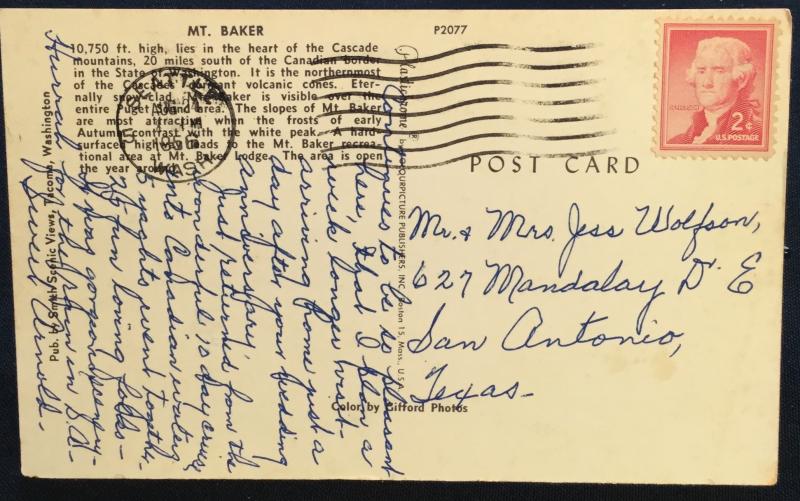 MT. BAKER
P2077
10,750 ft. high, lies in the heart of the Cascade
mountains, 20 miles south of the Canadian border
in the State of Washington. It is the northernmost
of the Cascades' dormant volcanic cones. Eter-
nally snow-clad, Mt. Baker is visible over the
entire Puget Sound area. The slopes of Mt. Baker
are most attractive when the frosts of early
Autumn contrast with the white peak. A hard-
surfaced highway leads to the Mt. Baker recrea-
tional area at Mt. Baker Lodge. The area is open
the year around.
Pub. by Smith Scenic Views, Tacoma, Washington
Plastichrome ® by COLOURPICTURE PUBLISHERS, INC., Boston 15, Mass., U.S.A.
SEATTLE
2¢
U.S. POSTAGE
POST CARD
Continues to be so pleasant
here, that I plan a
week longer visit -
arriving home just a
day after your wedding
anniversary.
Just returned from the
wonderful 10 day cruise
into Canadian waters
nights spent together
of fun loving folks -
was gorgeous scenery -
Hurrah for the rain in S.A. -
Sincerely Arnold -
Mr. & Mrs. Jess Wolfson,
627 Mandalay Dr E
San Antonio,
Texas -
Color by Gifford Photos